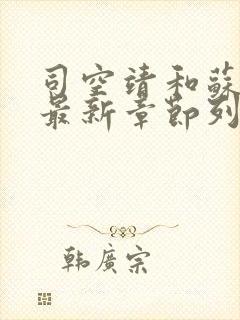 司空靖和蘇
最新章節列
韩廣宗